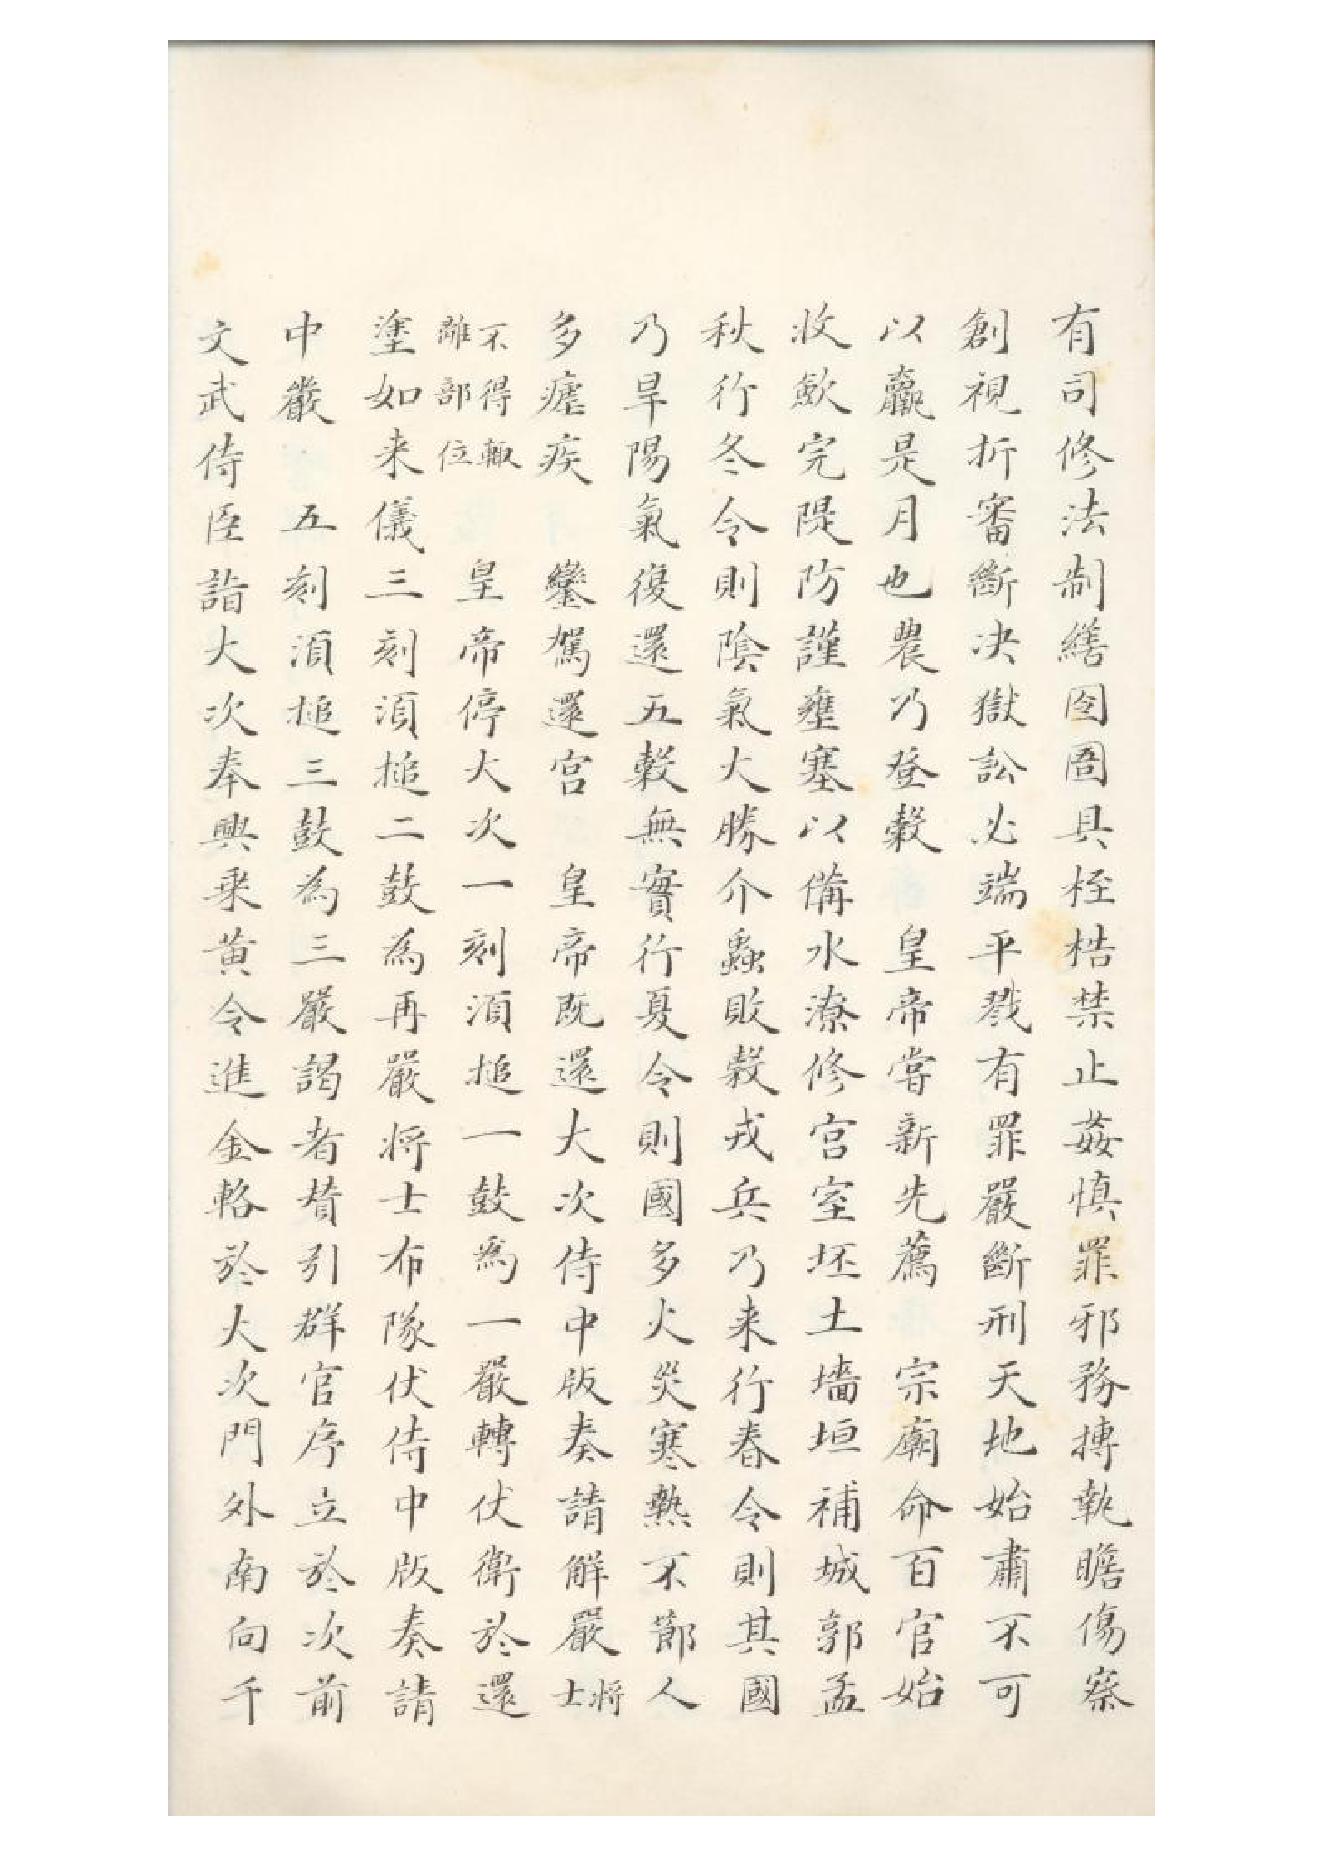 有司修法制繕囹圄具桎梏禁止姦慎罪邪務搏執瞻傷察
創視折審斷决獄訟必端平戮有罪嚴斷刑天地始肅不可
以贏是月也農乃登穀 皇帝嘗新先薦 宗廟命百官始
收歛完隄防謹壅塞以備水潦修宫室坯土墻垣補城郭孟
秋行冬令則陰氣大勝介蟲敗穀戎兵乃来行春令則其國
乃旱陽氣復還五穀無實行夏令則國多火災寒熱不節人
多瘧疾 鑾駕還宫 皇帝既還大次侍中版奏請解嚴將士
不得輙離部位 皇帝停大次一刻湏搥一鼓為一嚴轉仗衛於還
塗如来儀三刻湏搥二鼓為再嚴將士布隊仗侍中版奏請
中嚴 五刻湏搥三鼓為三嚴謁者賛引群官序立於次前
文武侍臣詣大次奉輿乗黄令進金輅於大次門外南向千